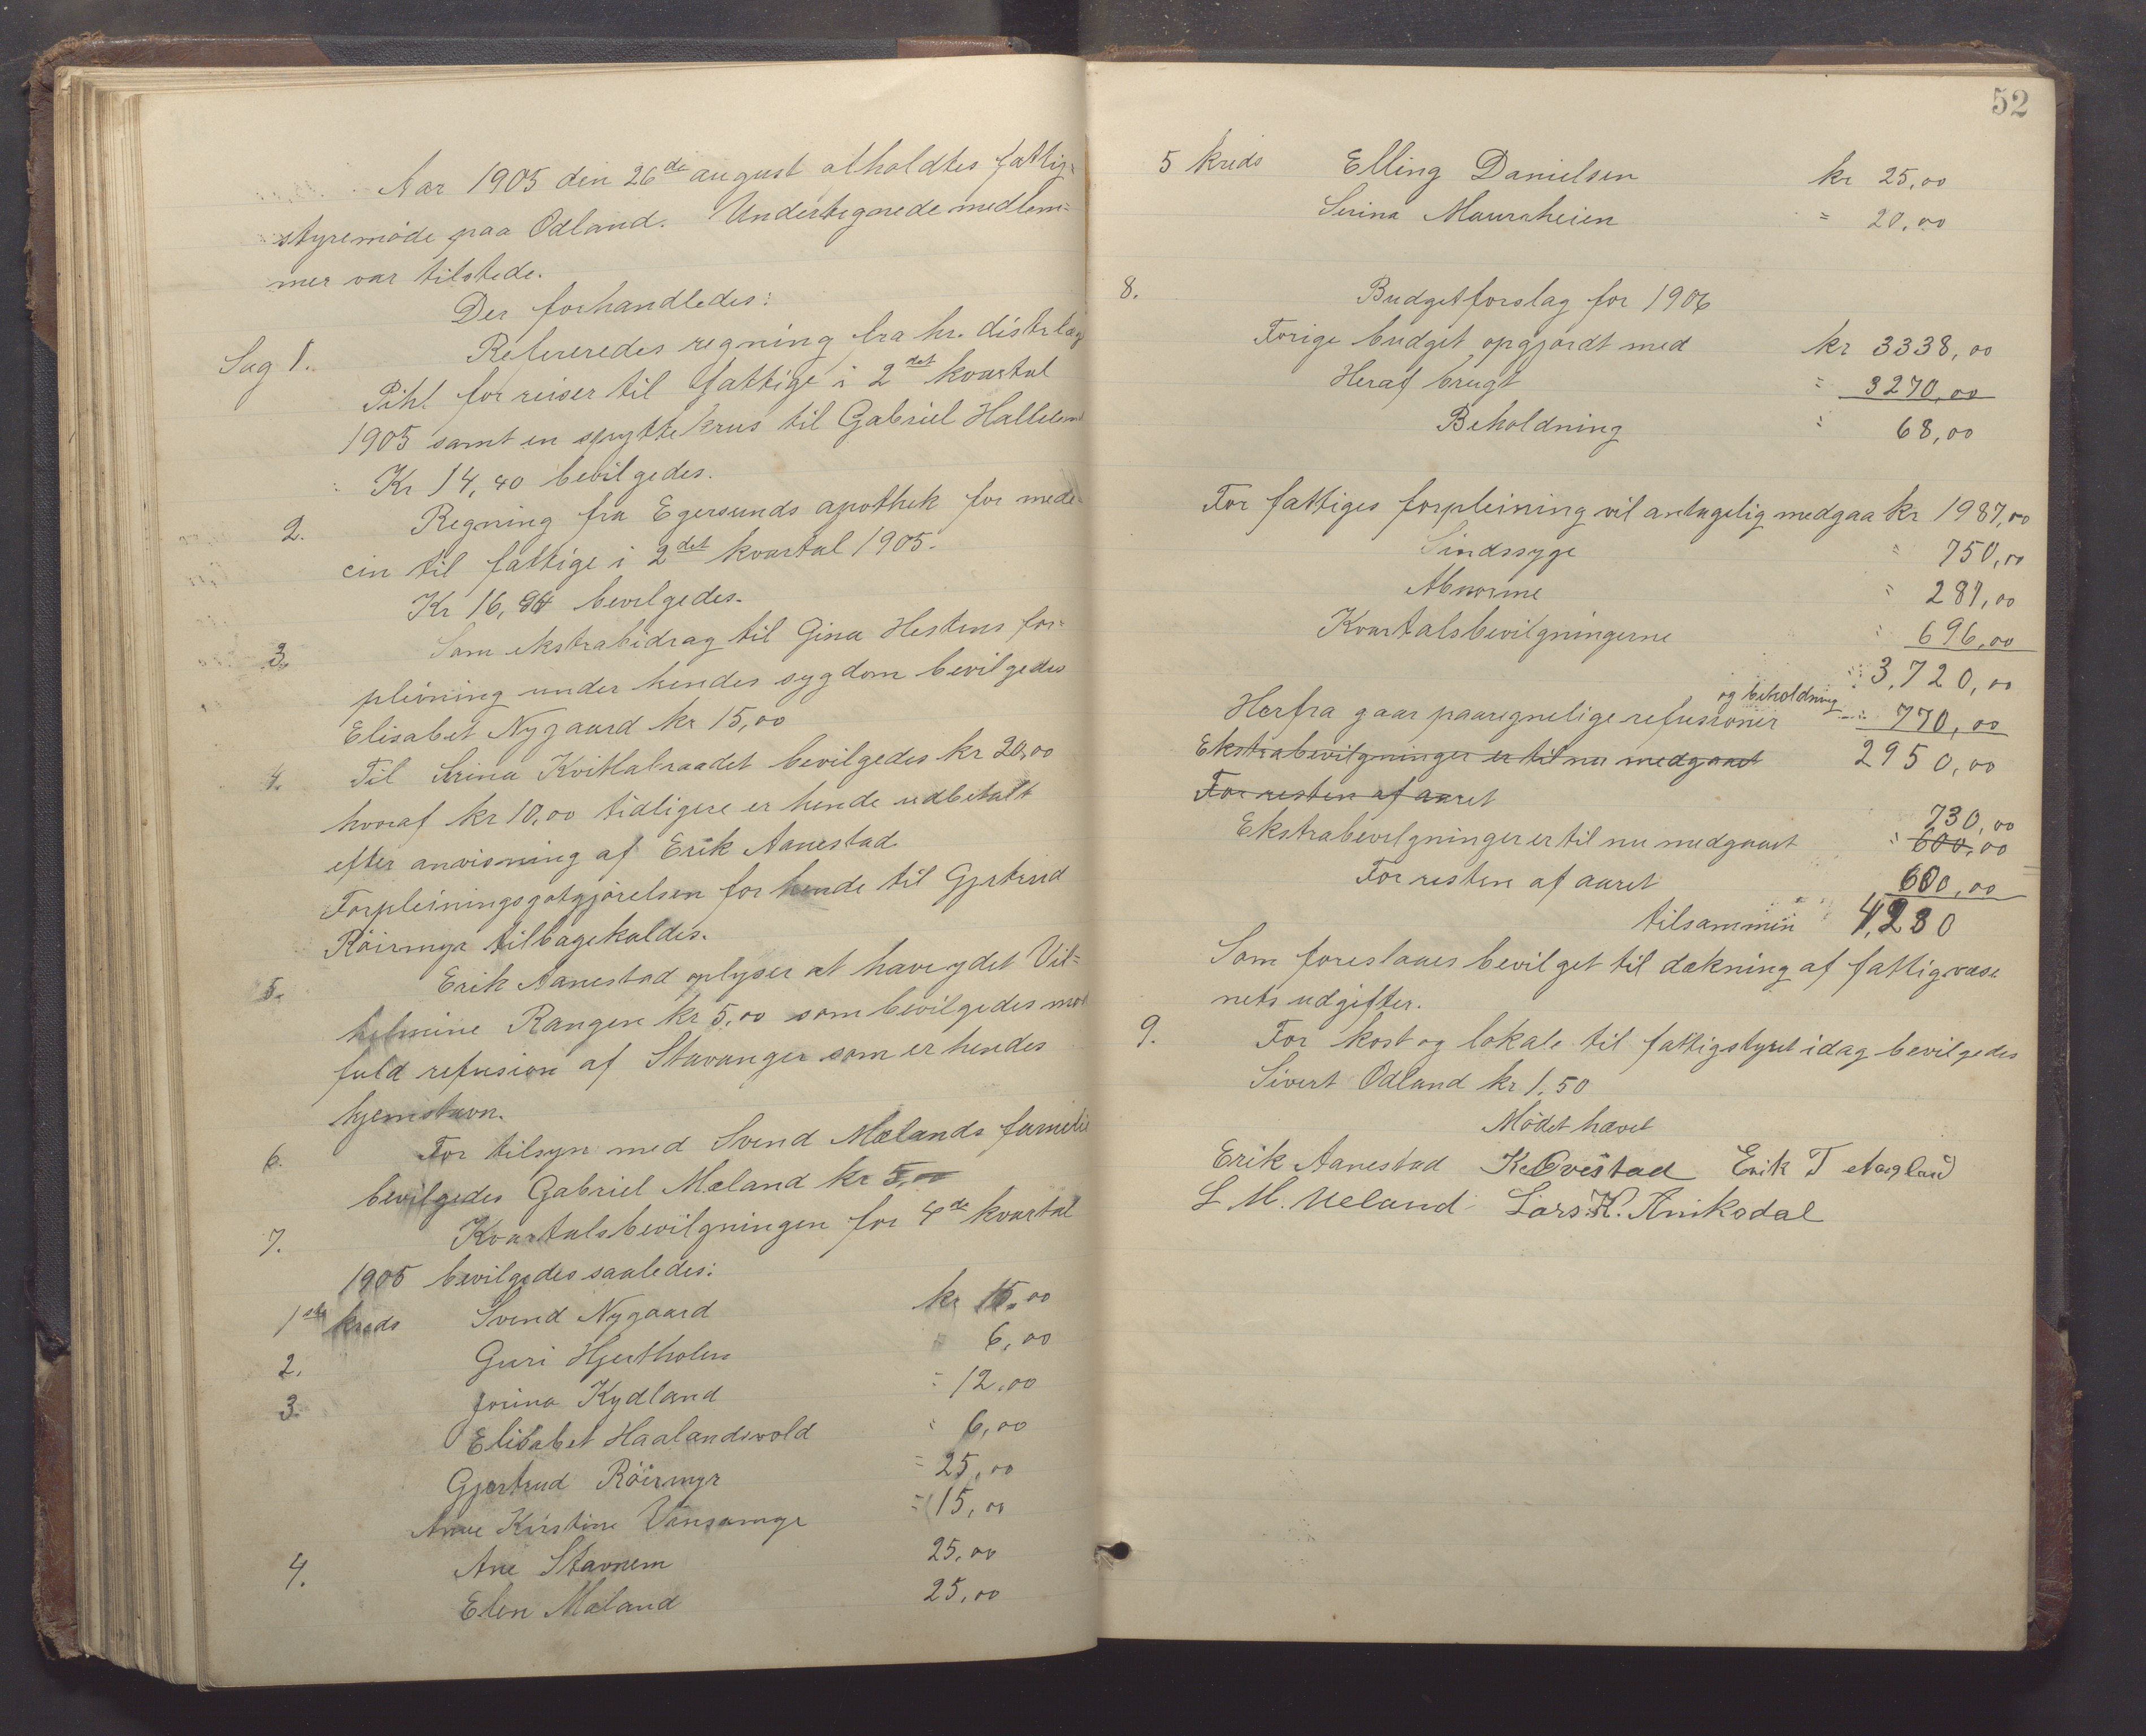 Aar 1905 den 26de august afholdtes fattig=
styremøde paa Odland. Undertegnede medlem=
mer var tilstede.
Der forhandledes:
Sag 1. Refereredes regning fra hr. distrlæg
Pihl for reiser til fattige i 2det kvartal
1905 samt en spyttekrus til Gabriel Halleland
Kr 14,40 bevilgedes.
2. Regning fra Egersunds apothek for mede=
cin til fattige i 2det kvartal 1905.
Kr 16, bevilgedes.
3. Som ekstrabidrag til Gina Hestens for=
pleining under hendes sygdom bevilgedes
Elisabet Nygaard kr 15,00
4. Til Serina Kvitlabraadet bevilgedes kr 20,00
hvoraf kr 10,00 tidligere er hende udbetalt
efter anvisning af Erik Aanestad
Forpleiningsgotgjørelsen for hende til Gjertrud
Röirmyr tilbagekaldes.
5. Erik Aanestad oplyser at have ydet Vil=
helmine Rangen kr 5,00 som bevilgedes mot
fuld refusion af Stavanger som er hendes
hjemstavn.
6. For tilsyn med Svend Mælands familie
bevilgedes Gabriel Mæland kr 5,00
7. Kvartalsbevilgningen for 4de kvartal
1905 bevilgedes saaledes:
1ste kreds Svend Nygaard kr 15,00
2. Guri Hjertholen 6,00
3. Jorina Kydland = 12,00
Elisabet Haalandsvold = 6,00
Gjertrud Röirmyr = 25,00
Anne Kirstine Vansamyr = 15,00
4. Ane Stavnem 25,00
Elen Mæland 25,00
52
5 kreds Elling Danielsen kr 25,00
Serina Mauraheien = 20,00
8. Budgetforslag for 1906
Forige budget opgjordt med kr 3338,00
Heraf brugt = 3270,00
Beholdning = 68,00
For fattiges forpleining vil antagelig medgaa kr 1987,00
Sindssyge = 750,00
Abnorme = 287,00
Kvartalsbevilgningerne = 696,00
3,720,00
og beholdning
Herfra gaar paaregnelige refusioner = 770,00
Ekstrabevilgninger er til nu medgaaet 2950,00
For resten af aaret
730,00
Ekstrabevilgninger er til nu medgaaet = 600,00
For resten af aaret 600,00
tilsammen 4,280
Som foreslaaes bevilget til dækning af fattigvæse
nets udgifter.
9. For kost og lokale til fattigstyret idag bevilgedes
Sivert Odland kr 1,50
Mödet hævet
Erik Aanestad K. Ovestad Erik T Aagland
L M. Ueland Lars K. Aniksdal